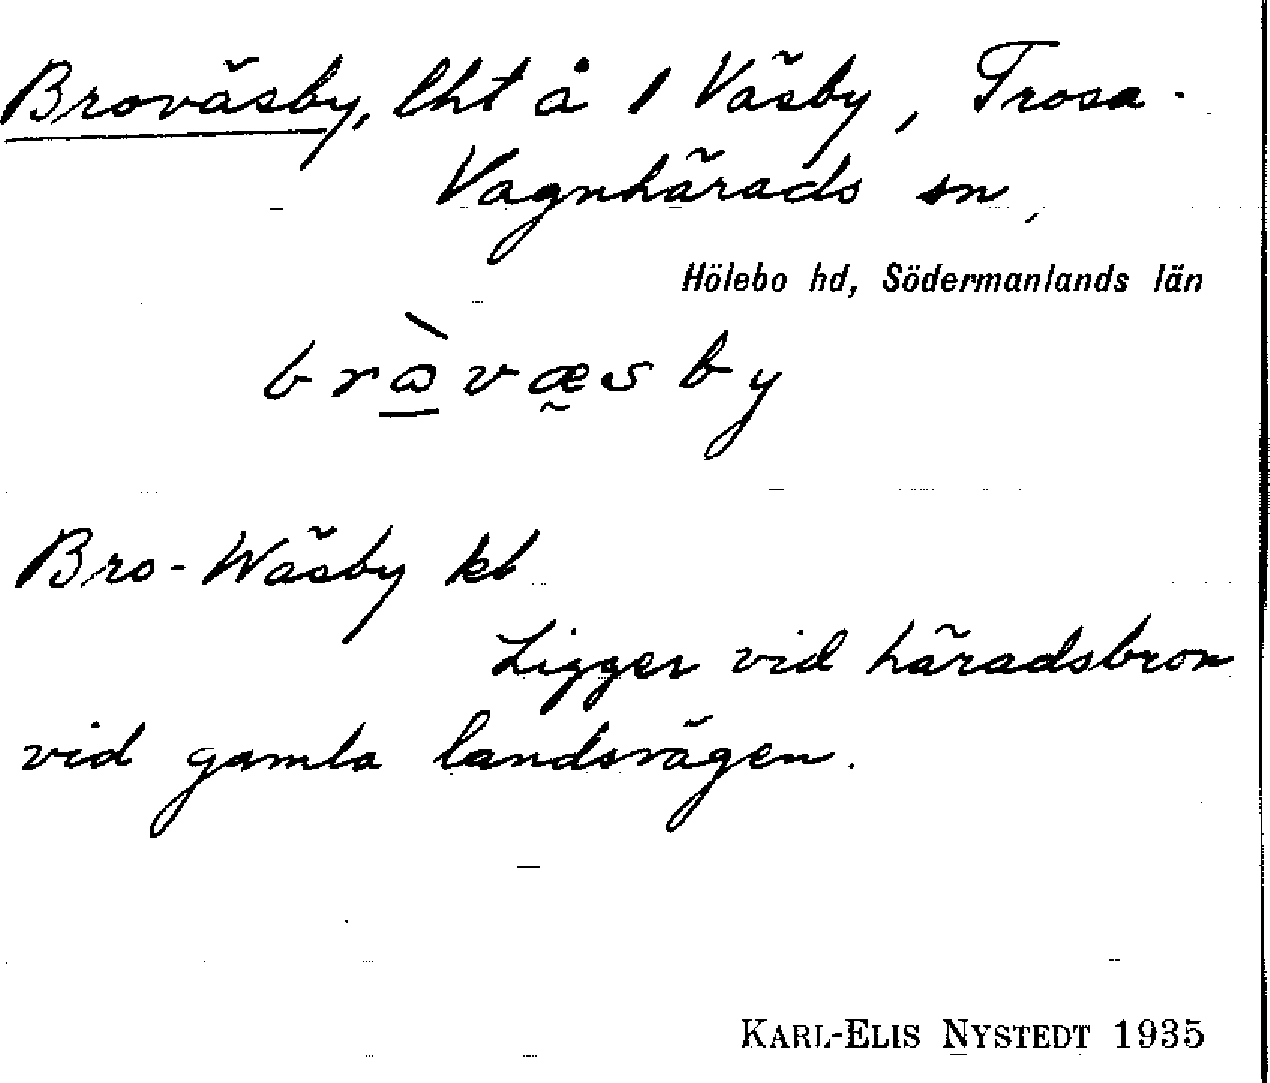 Broväsby, lht å 1 Väsby, Trosa-
Vagnhärads sn,
Hölebo hd, Södermanlands län
brὼ̱væ̰sby
Bro-Wäsby kb
Ligger vid häradsbron
vid gamla landsvägen.
KARL-ELIS NYSTEDT 1935